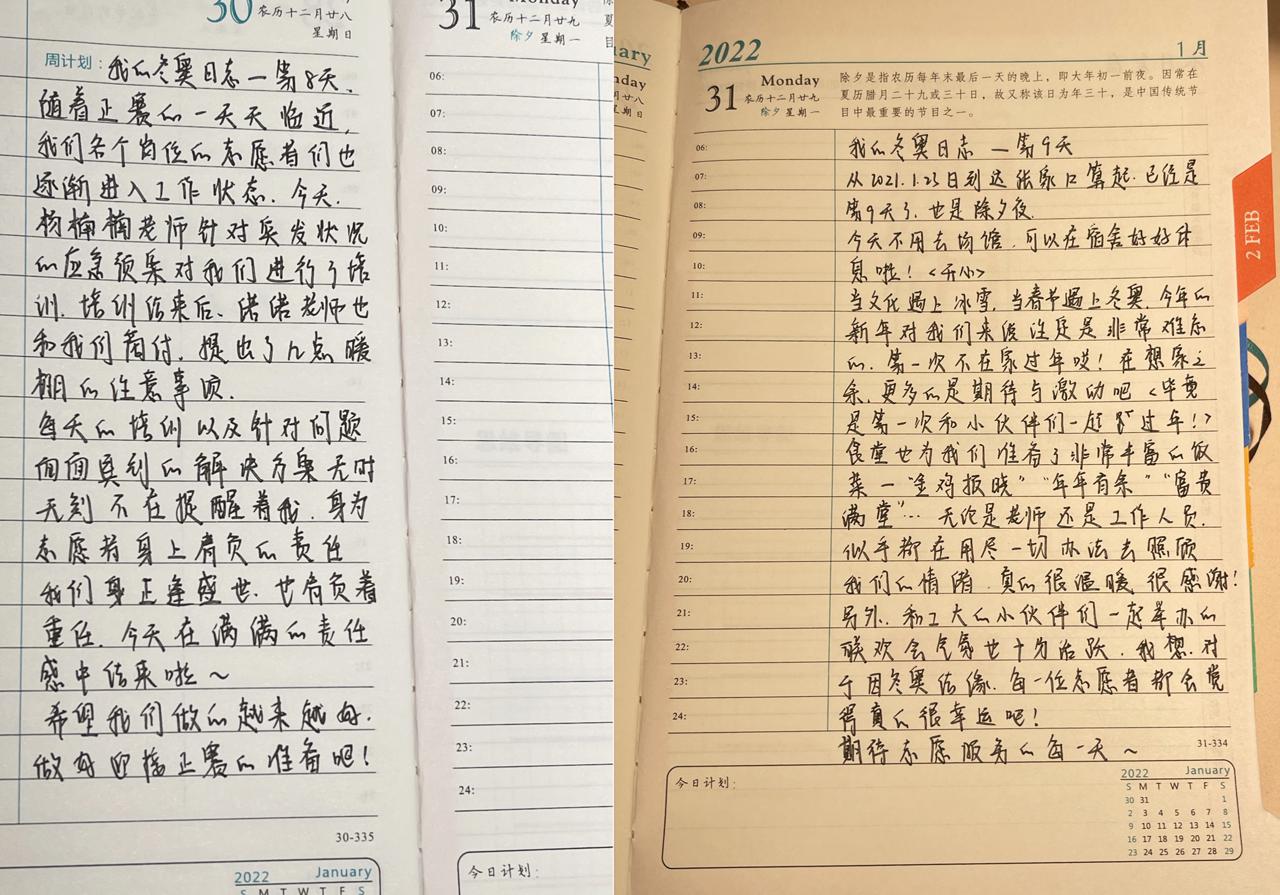 30
农历十二月廿八
星期日
周计划：我的冬奥日志—第8天.
随着正赛的一天天临近,
我们各个岗位的志愿者们也
逐渐进入工作状态. 今天.
杨楠楠老师针对突发状况
的应急预案对我们进行了培
训. 培训结束后、诺诺老师也
和我们着付. 提出了几点暖
棚的注意事项.
每天的培训以及针对问题
面面具到的解决方案无时
无刻不在提醒着我. 身为
志愿者身上肩负的责任
我们身正逢盛世. 也肩负着
重任. 今天在满满的责任
感中结束啦～
希望我们做的越来越好.
做好迎接正赛的准备吧!
30-335
2022 January
S M T W T F S
31
Monday
农历十二月廿九
除夕 星期一
06:
07:
08:
09:
10:
11:
12:
13:
14:
15:
16:
17:
18:
19:
20:
21:
22:
23:
24:
今日计划：
uary
nday
廿八
星期日
2022
1月
31
Monday
农历十二月廿九
除夕 星期一
除夕是指农历每年末最后一天的晚上，即大年初一前夜。因常在
夏历腊月二十九或三十日，故又称该日为年三十，是中国传统节
目中最重要的节目之一。
06: 我的冬奥日志 —第9天
07: 从2021.1.23日到达张家口算起. 已经是
08: 第9天了. 也是除夕夜.
09: 今天不用去场馆. 可以在宿舍好好休
10: 息啦! <开心>
11: 当文化遇上冰雪. 当春节遇上冬奥. 今年的
12: 新年对我们来说注定是非常难忘
13: 的. 第一次不在家过年哎! 在想家之
14: 余. 更多的是期待与激动吧 <毕竟
15: 是第一次和小伙伴们一起过年!>
16: 食堂也为我们准备了非常丰富的饭
17: 菜—“金鸡报晓” “年年有余” “富贵
18: 满堂”… 无论是老师还是工作人员.
19: 似乎都在用尽一切办法去照顾
20: 我们的情绪. 真的很温暖很感谢!
21: 另外. 和工大的小伙伴们一起举办的
22: 联欢会气氛也十分活跃. 我想. 对
23: 于因冬奥结缘. 每一位志愿者都会觉
24: 得真的很幸运吧!
期待志愿服务的每一天～
31-334
今日计划：
2022 January
S M T W T F S
30 31 1
2 3 4 5 6 7 8
9 10 11 12 13 14 15
16 17 18 19 20 21 22
23 24 25 26 27 28 29
2 FEB